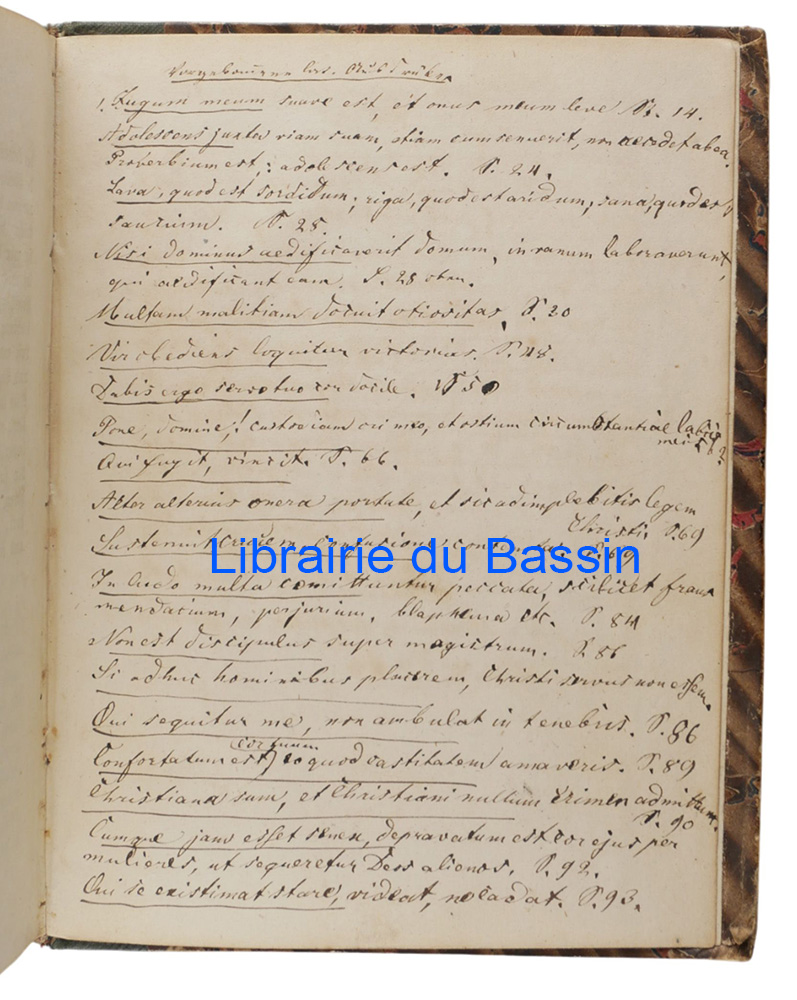 Vorgekommene lat.
1. Jugum meum suave est, et onus meum leve S. 14.
Adolescens juxta viam suam, etiam cum senuerit, non recedet ab ea.
Proverbium est; adolescens est. S. 24.
Lava, quod est sordidum; riga, quod est aridum; sana, quod est
saucium. S. 25.
Nisi dominus aedificaverit domum, in vanum laboraverunt,
qui aedificant eam. S. 28 oben.
Multam malitiam docuit otiositas, S. 20
Vir obediens loquitur victorias. S. 48.
Dabis ergo servo tuo cor docile. S 50
Pone, domine,! custodiam ori meo, et ostium circumstantiae labiis
meis S. 2.
Qui fugit, vincit. S. 66.
Alter alterius onera portate, et sic adimplebitis legem
Christi. S. 69
Sustenuit crucem, confusione
Librairie du Bassin
In ludo multa comittuntur peccata, scilicet fraus
mendacium, perjurium, blasphemia etc. S. 84
Non est discipulus super magistrum. S. 86
Si adhuc hominibus placerem, Christi servus non essem.
Qui sequitur me, non ambulat in tenebris. S. 86
cor tuum
Confortatum est, eo quod castitatem amaveris. S. 89
Christiana sum, et Christiani nullum crimen admittunt.
S. 90
Cumque jam esset senex, depravatum est cor ejus per
mulieres, ut sequeretur Deos alienos. S. 92.
Qui se existimat stare, videat, ne cadat. S. 93.